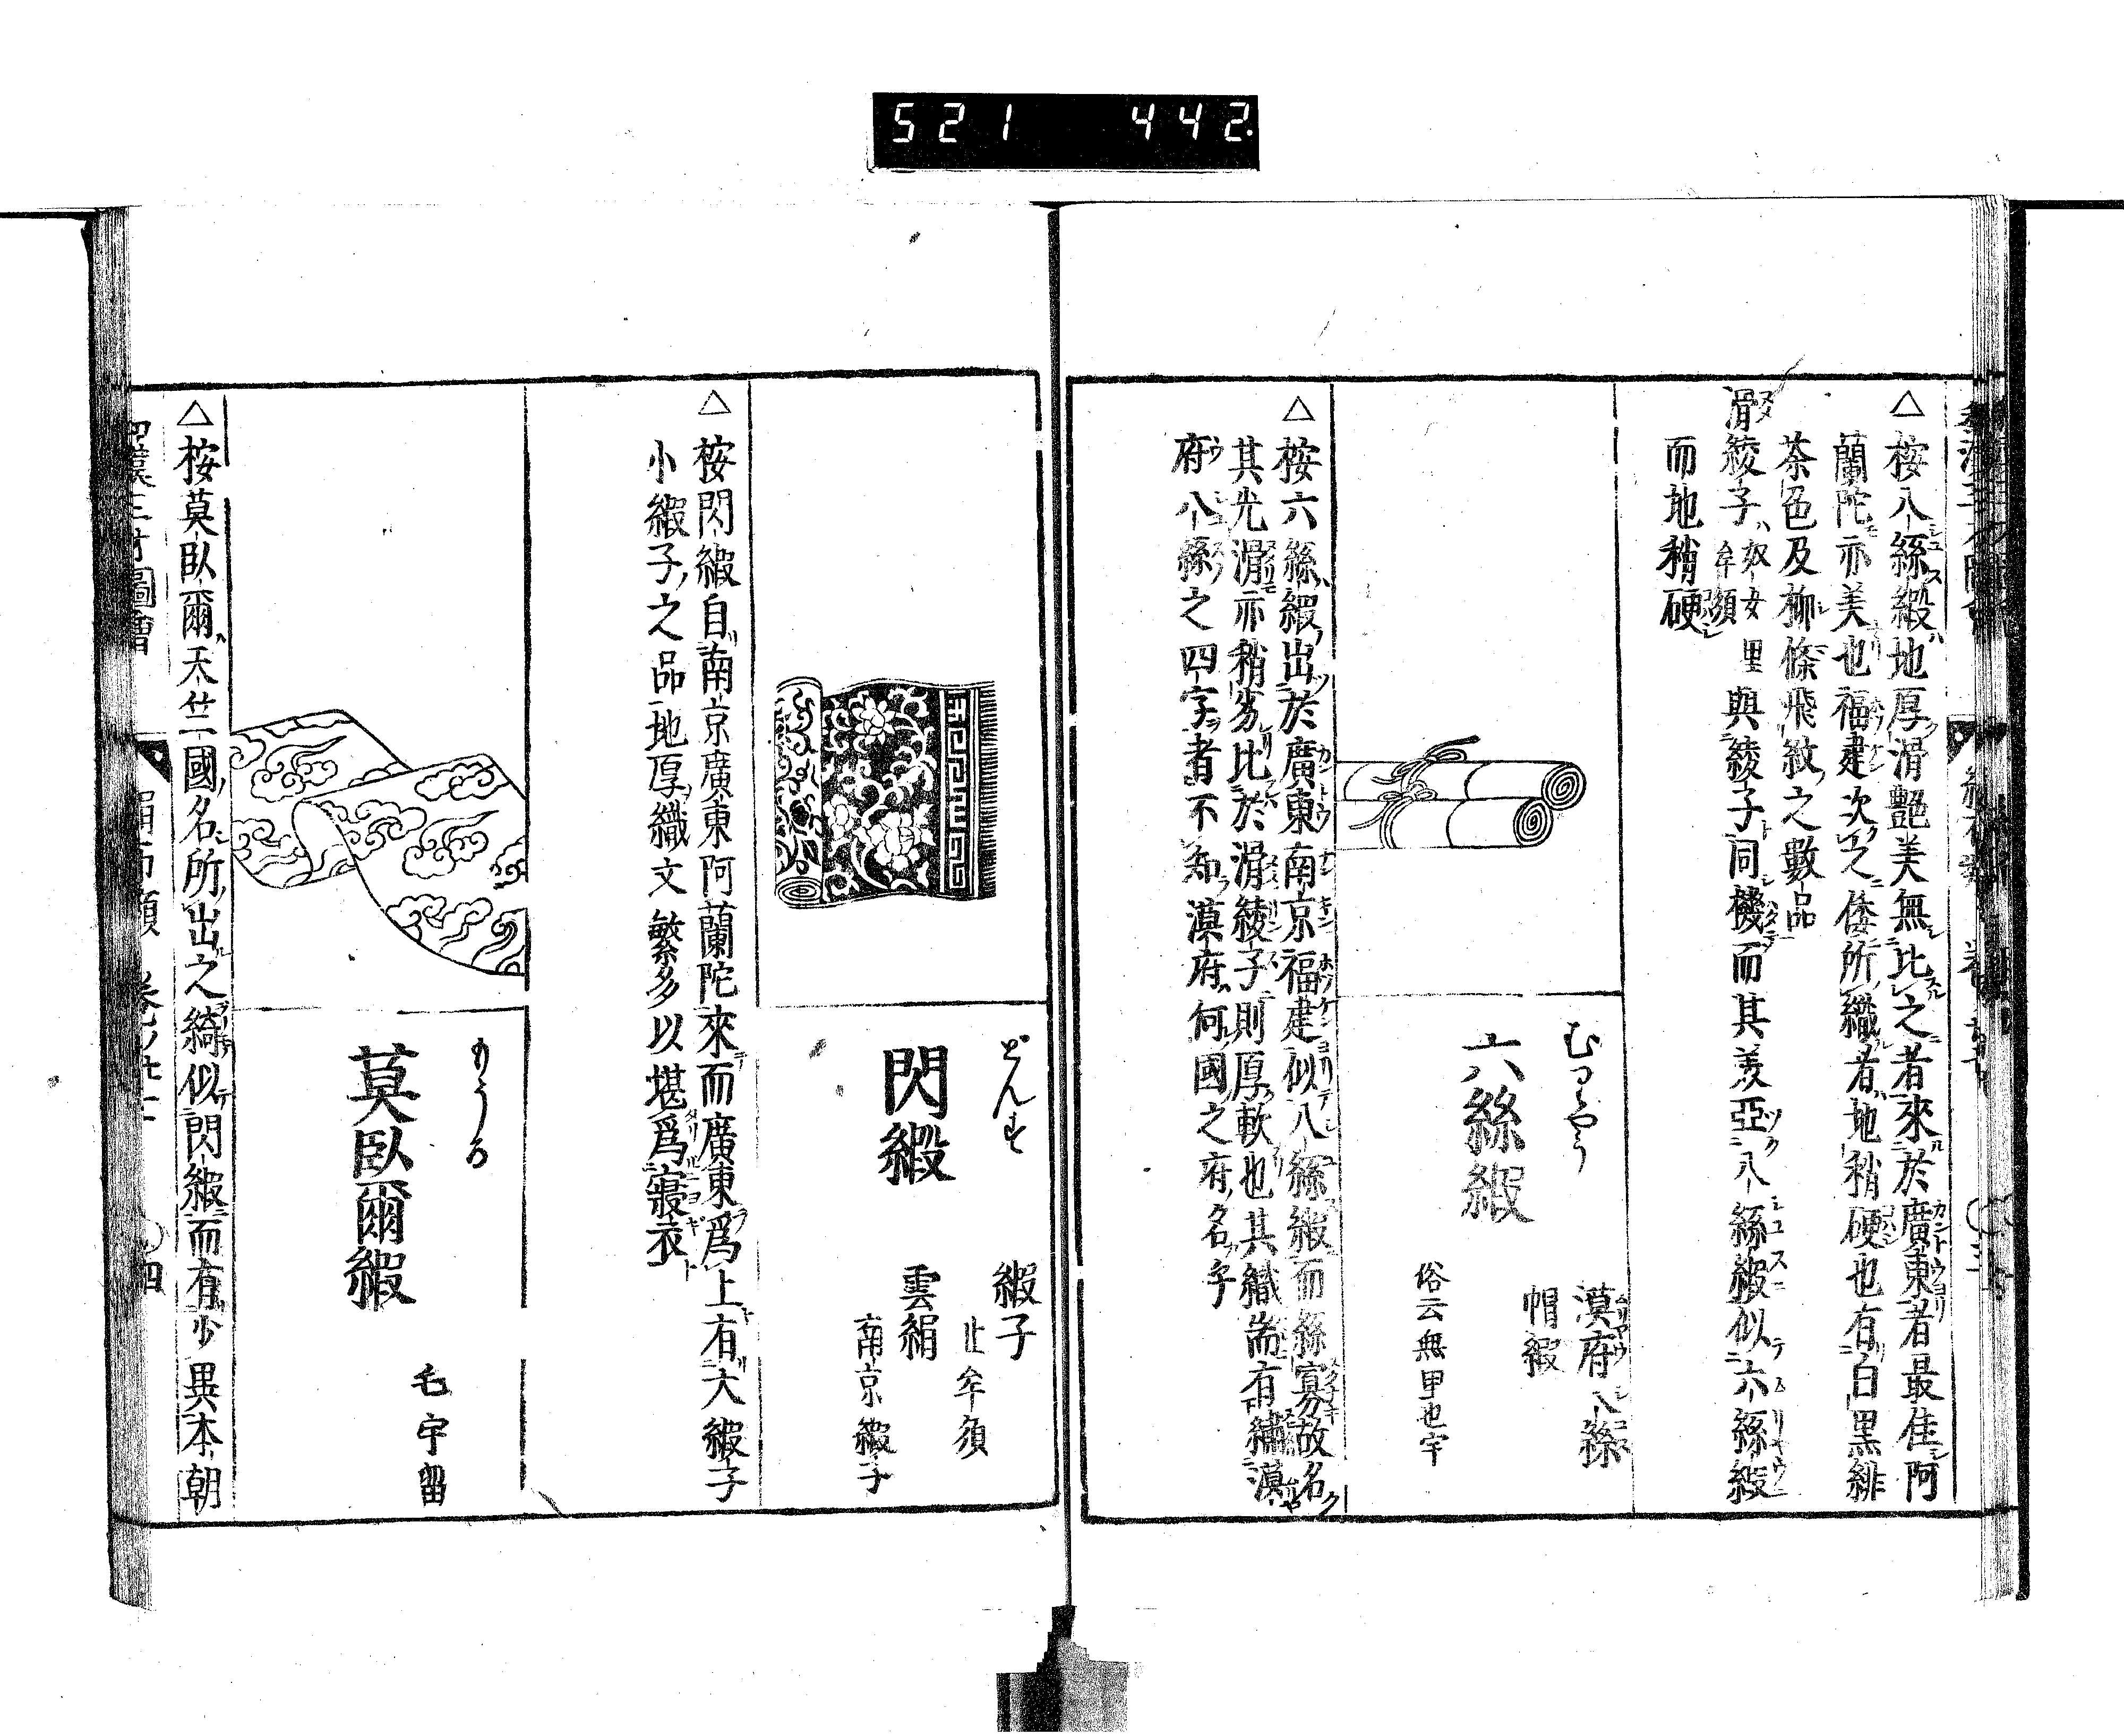 521 442
△按八絲緞地厚滑艶美無比之者來於廣東者最佳阿
蘭陀亦美也福建次之倭所織者地稍硬也有白黒緋
茶色及柳條飛紋之數品
滑綾子奴女里牟須與綾子同機而其美亞八絲緞似六絲緞
而地稍硬
むりやう
六絲緞
漠府八絲
帽緞
俗云無里也宇
△按六絲緞出於廣東南京福建似八絲緞而絲寡故名
其光滑亦稍劣比於滑綾子則厚軟也其織耑有繡漠
府八絲之四字者不知漠府何國之府名乎
どんす
閃緞
緞子
止牟須
雲絹
南京緞子
△按閃緞自南京廣東阿蘭陀來而廣東爲上有大緞子
小緞子之品地厚織文繁多以堪爲寢衣
もうる
莫臥爾緞
毛宇留
△按莫臥爾天竺國名所出之綺似閃緞而有少異本朝